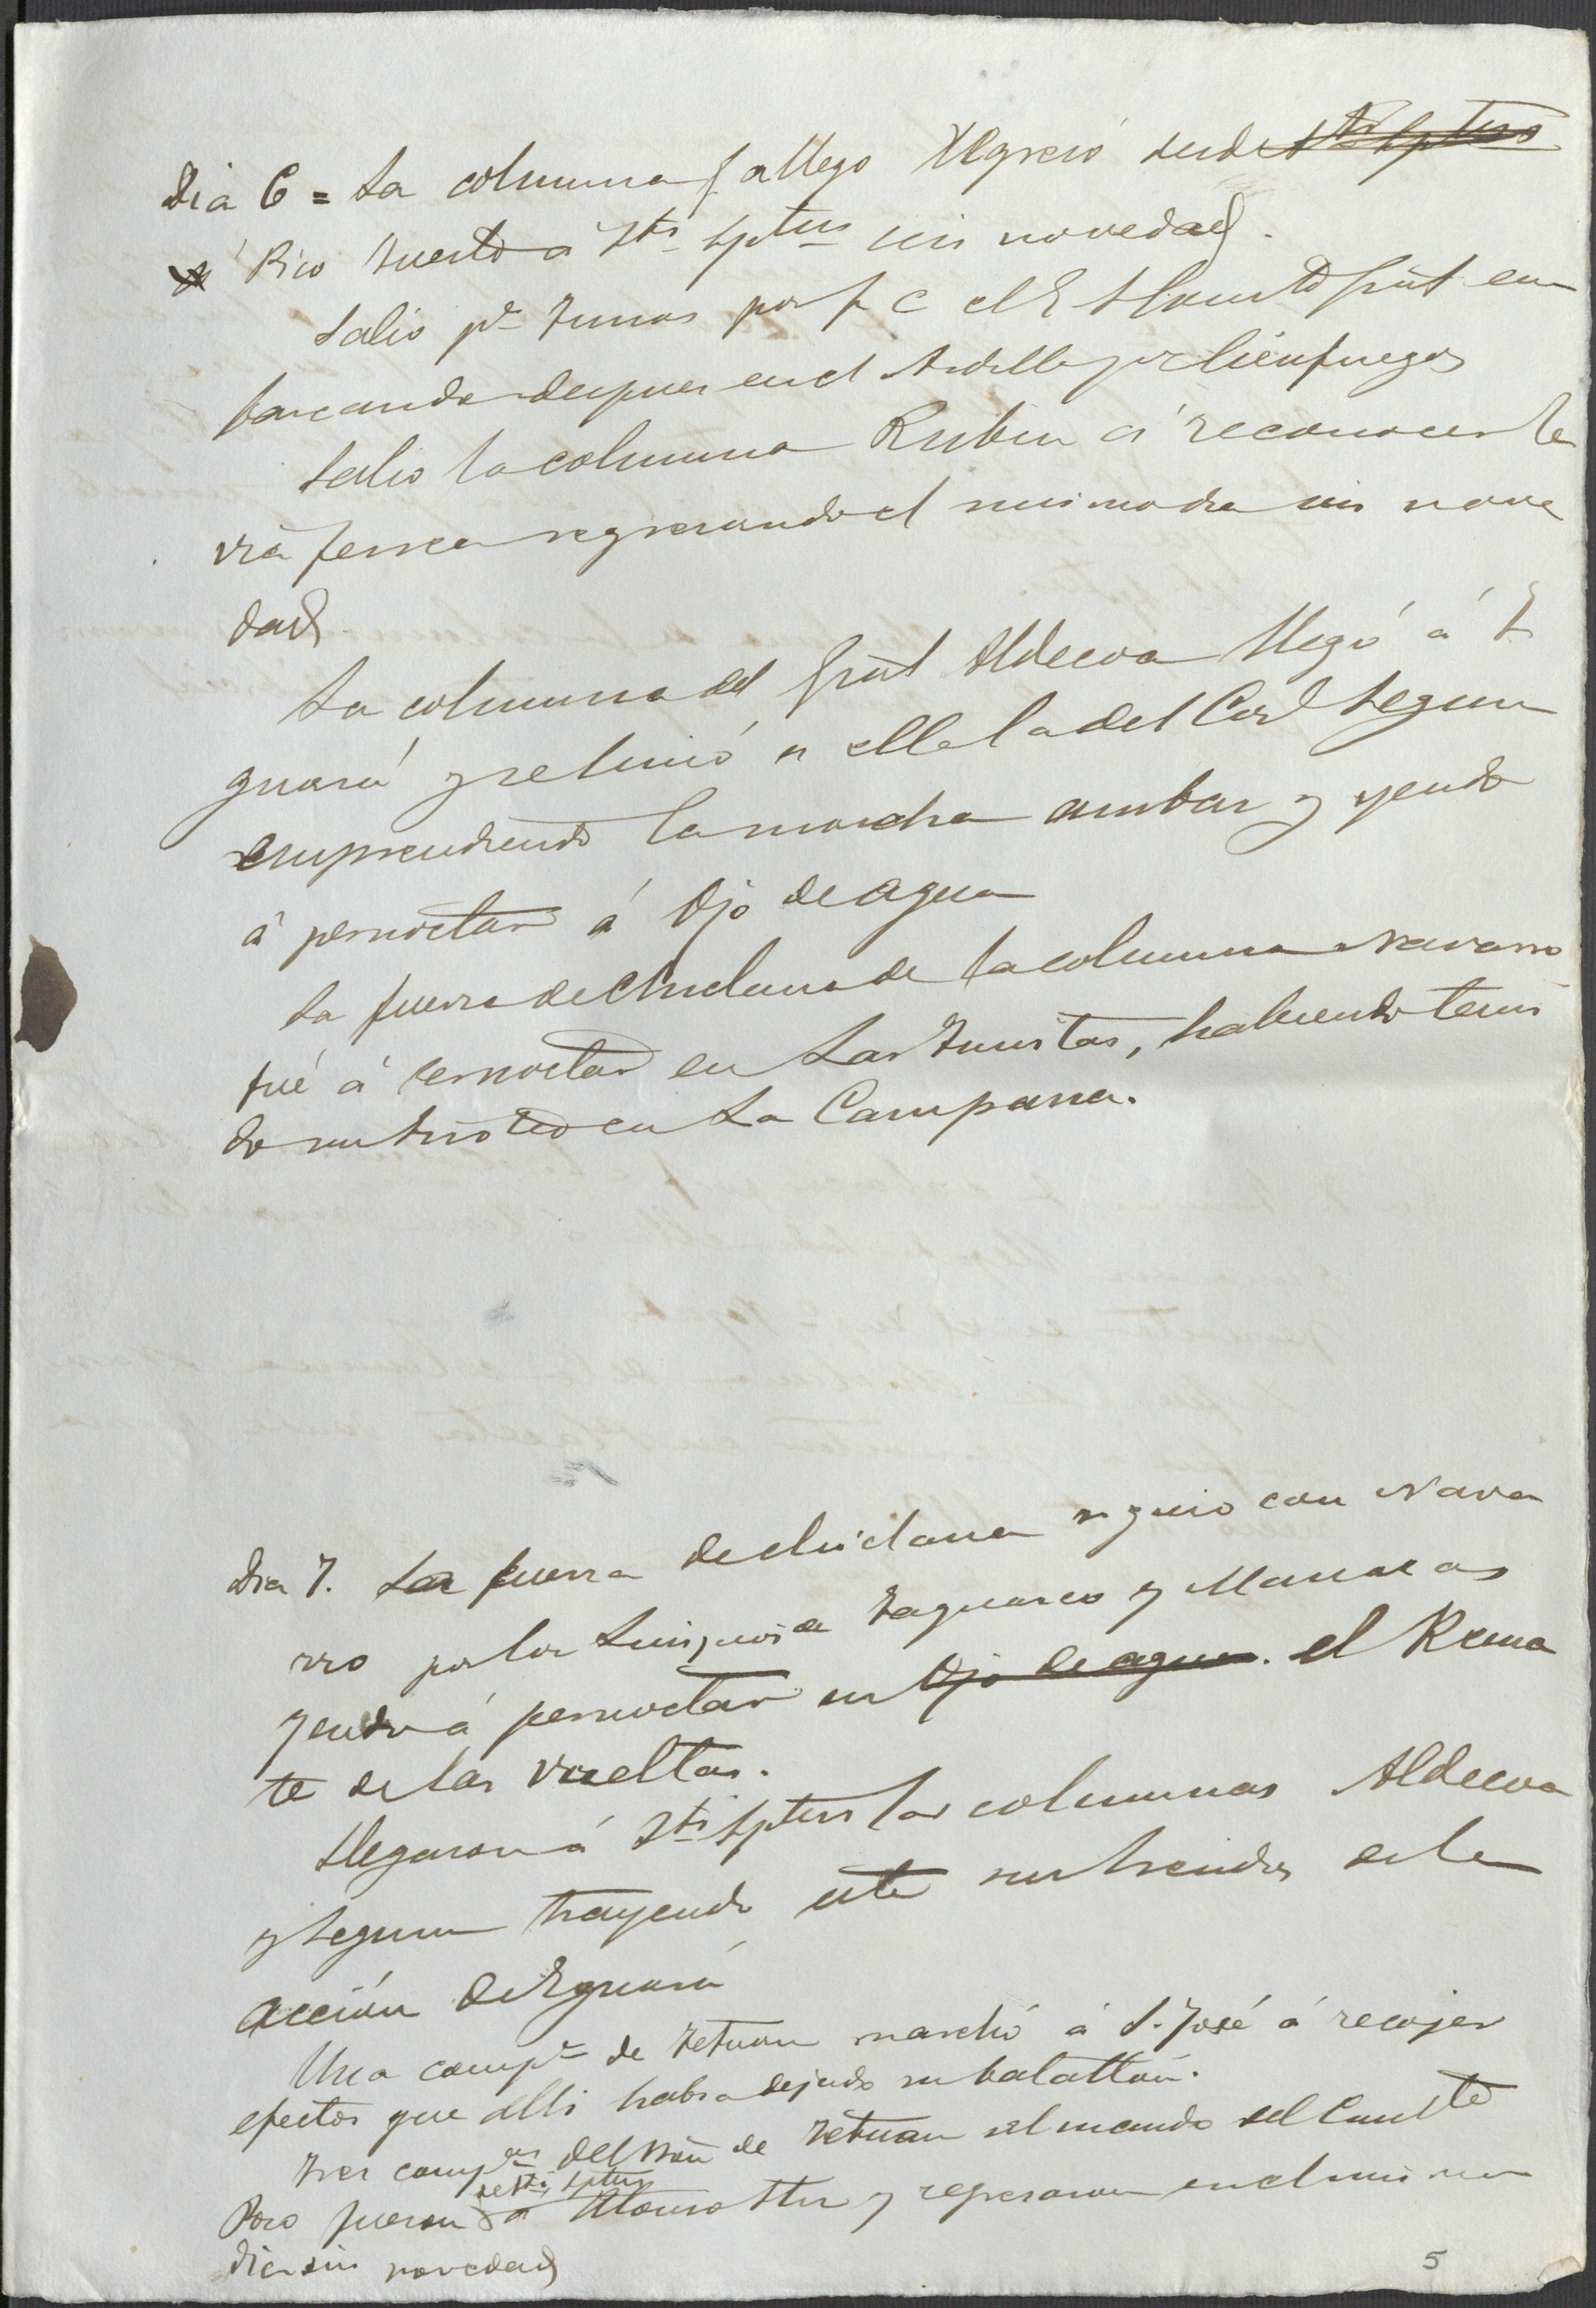 Dia 6 = La columna Gallego regresó desde ~~Sti Sptus~~
á Rico Tuerto á Sti Sptus sin novedad.
Salió pª Tunas por f c el E S Comte Gral em
barcando despues en el Ardilla por Cienfuegos
Salió la columna Rubin á reconocer la
via ferrea regresando el mismo dia sin nove
dad
La columna del Gral Aldecoa llegó á I
guará y se le unió á ella la del Corl Segura
emprendiendo la marcha ambas y yendo
á pernoctar á Ojo de agua
La fuerza de Chiclana de la columna Navarro
fué á pernoctar en Las Tunitas, habiendo teni
do un tiroteo en La Campana.
Dia 7. La fuerza de Chiclana siguió con Nava
rro por los Taguasco y Manacas
yendo á pernoctar en ~~Ojo de agua~~. el Rema
te de las Vueltas.
Llegaron á Sti Sptus las columnas Aldecoa
y Segura trayendo este sus heridos de la
acción de Iguará
Una compª de Tetuan marchó á S. José á recojer
efectos que alli habia dejado su batallón.
Tres compas del Bón de Tetuan al mando del Comte
de Sti Sptus
Pozo fueron á y regresaron en el mismo
dia sin novedad
5